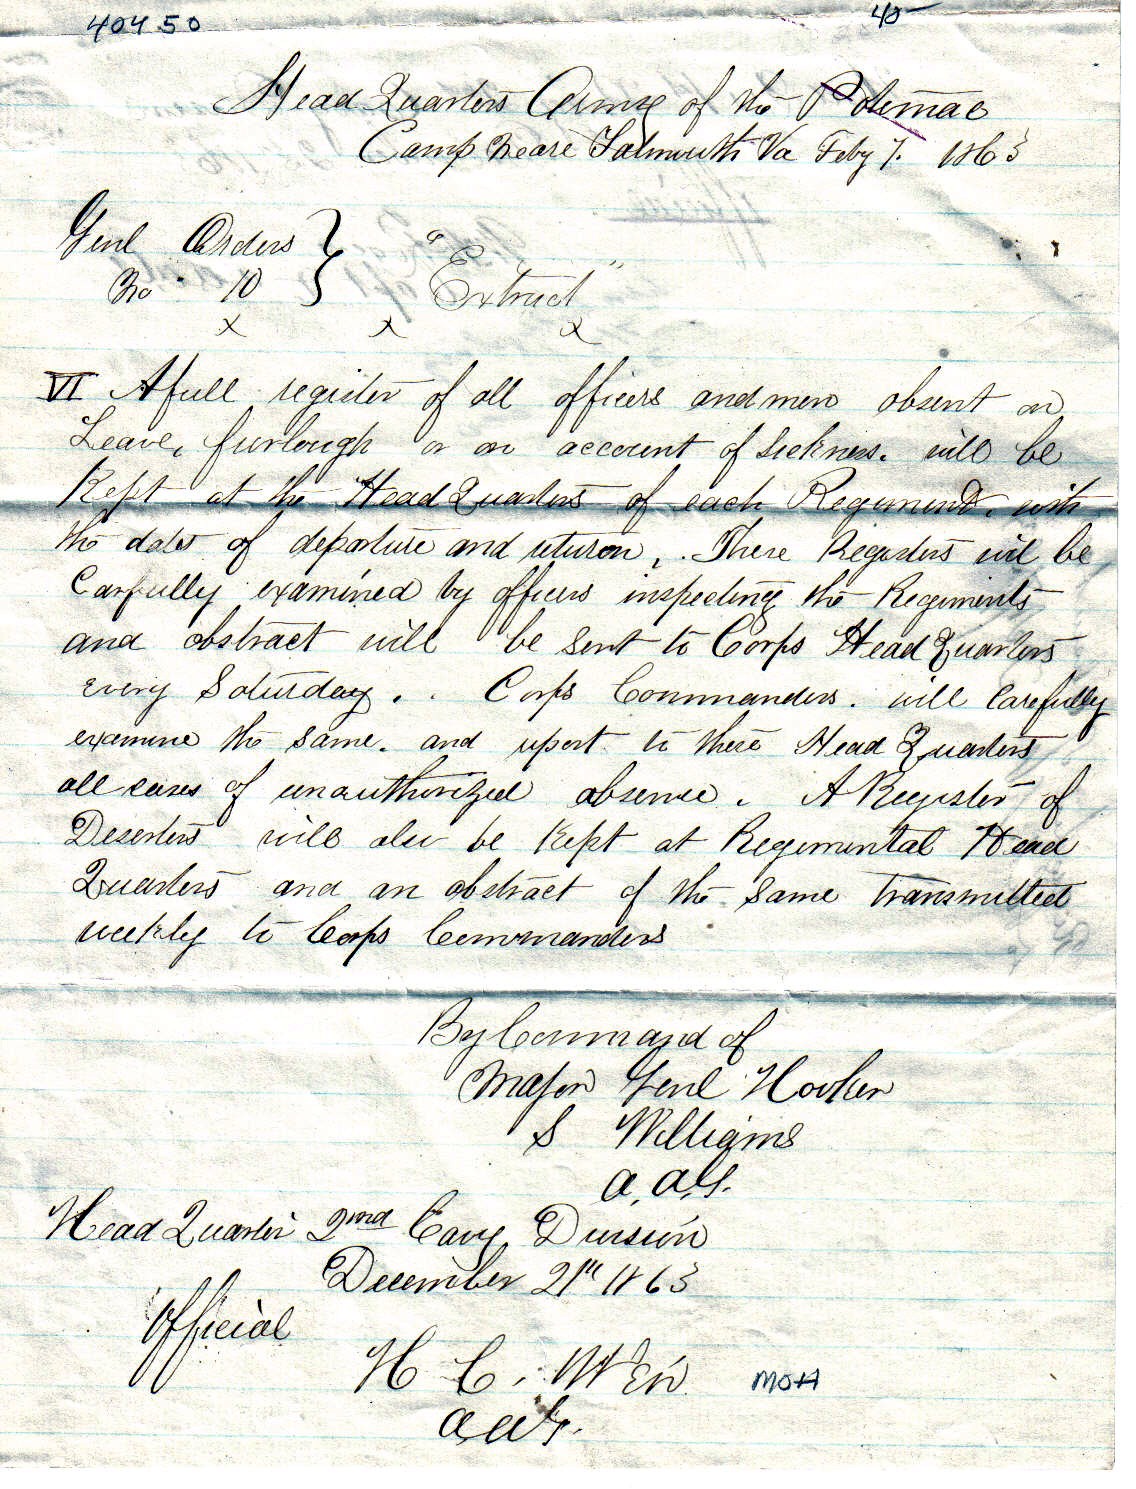 40450 40
Head Quarters Army of the Potomac
Camp Neare Falmouth Va Feby 7. 1863
Genl Orders } "Extract"
No 10
x x x
VI A full register of all officers and men absent on
Leave, furlough or on account of Sickness. will be
Kept at the Head Quarters of each Regiment, with
the dates of departure and return, . These Registers will be
Carfully examined by officers inspecting the Regiments
and abstract will be sent to Corps Head Quarters
every Saturday. . Corps Commanders. will Carefully
examine the same. and report to these Head Quarters
all cases of unauthorized absence. A Register of
Deserters will also be Kept at Regimental Head
Quarters and an abstract of the same transmitted
weekly to Corps Commanders
By Command of
Major Genl Hooker
S Williams
A. A. G.
Head Quarter 2nd Cavy Division
December 21st 1863
Official
H C. Weir
A A G.
MOH